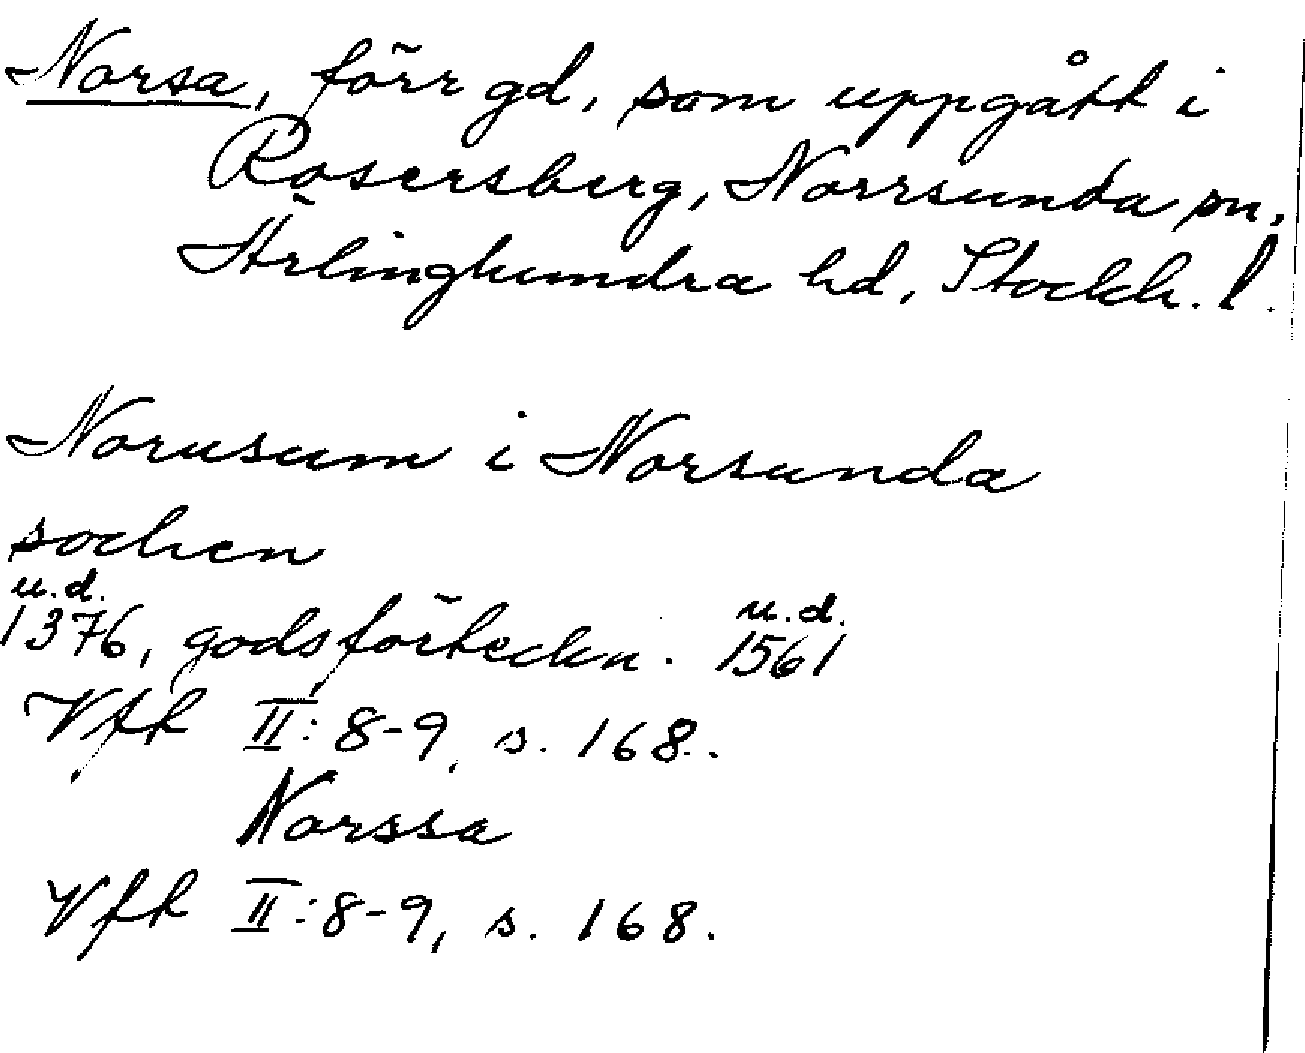 Norsa, förr gd, som uppgått i
Rosersberg, Norrsunda sn,
Ärlinghundra hd, Stockh. l.
Norusum i Norsunda
sochen
u.d. u.d.
1376, godsförteckn. 1561
Vfk II:8-9, s. 168.
Norssa
Vfk II:8-9, s. 168.